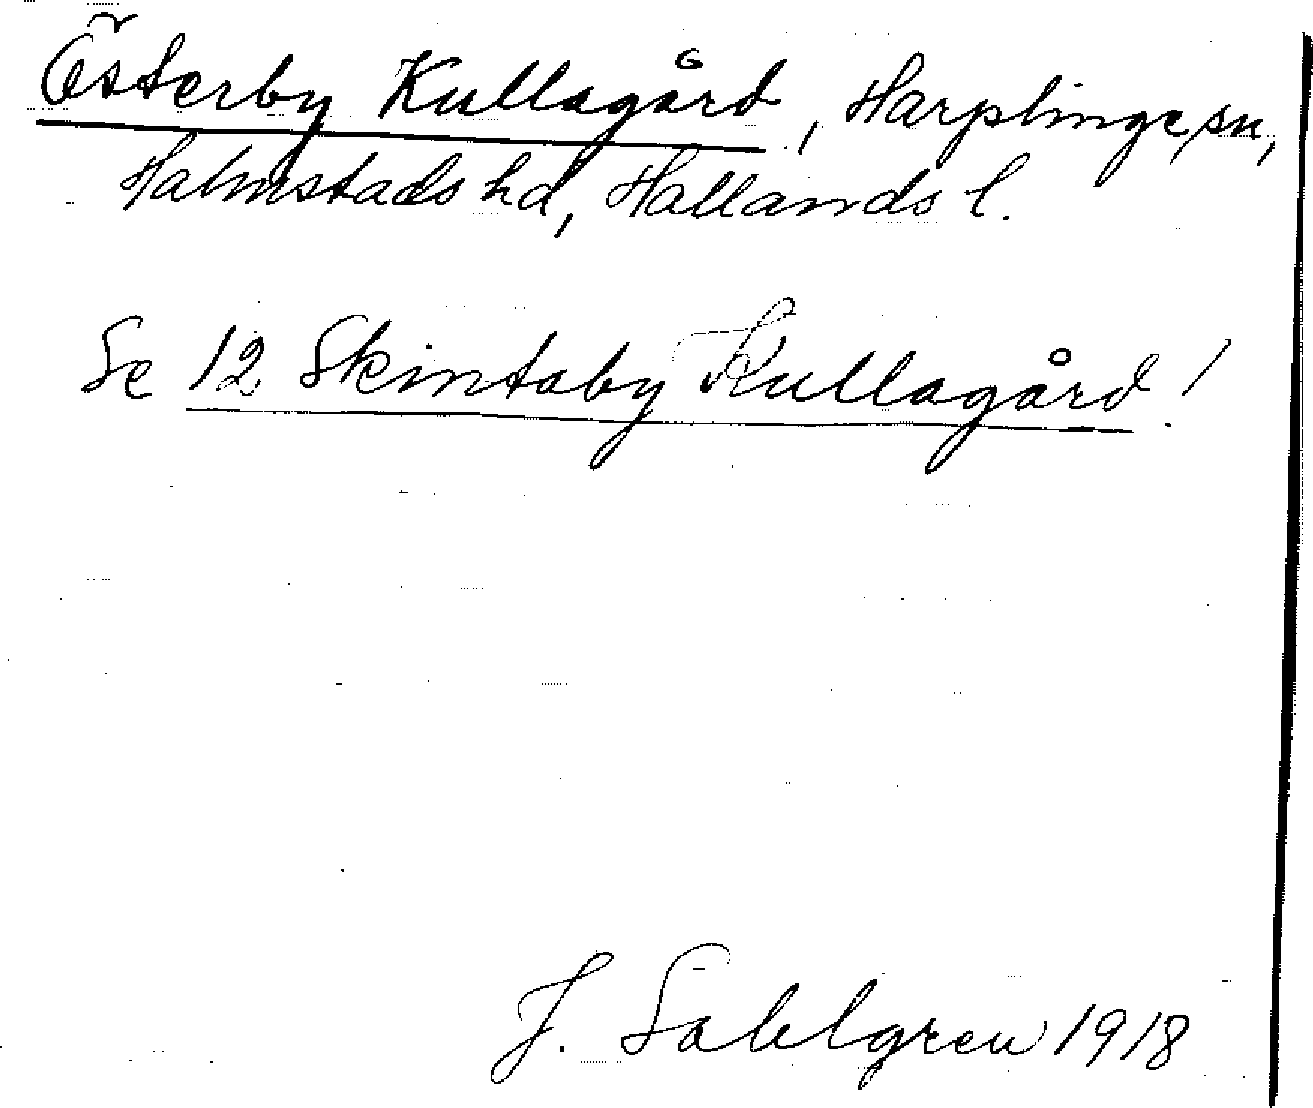 Österby Kullagård, Harplinge sn,
Halmstads hd, Hallands l.
Se 12 Skintaby Kullagård!
J. Sahlgren 1918